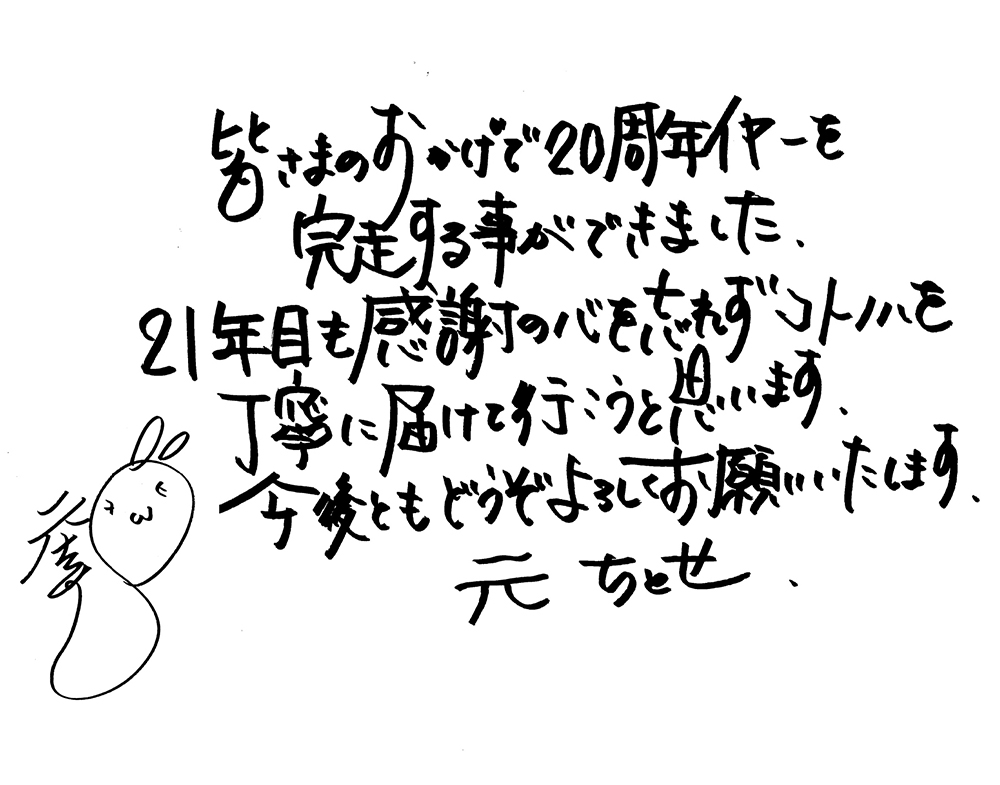 皆さまのおかげで20周年イヤーを
完走する事ができました、
21年目も感謝の心を忘れずコトノハを
丁寧に届けて行こうと思います、
今後ともどうぞよろしくお願いいたします、
元 ちとせ、